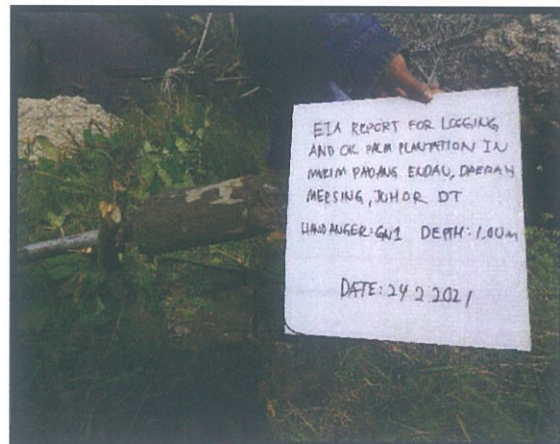 EIA REPORT FOR LOGGING
AND OIL PALM PLANTATION IN
MUKIM PADANG ENDAU, DAERAH
MERSING, JOHOR DT
HAND AUGER: GN1 DEPTH: 1.00m
DATE: 24 2 2021